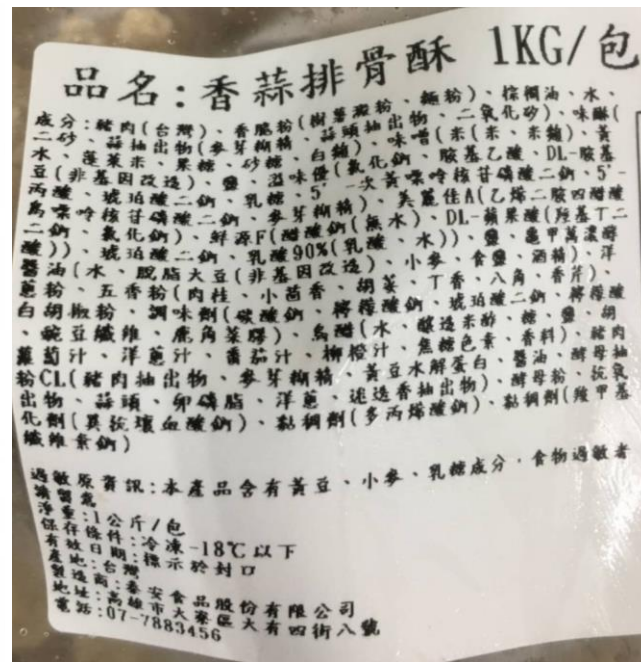 品名:香蒜排骨酥 1KG/包
成分:豬肉(台灣)、香脆粉(樹薯澱粉、麵粉)、棕櫚油、水、
二砂、蒜抽出物(麥芽糊精、蒜頭抽出物、二氧化矽)、味醂(
水、蓬萊米、果糖、砂糖、白麴)、味噌(米(米、米麴)、黃
豆(非基因改造)、鹽、溢味優(氯化鈉、胺基乙酸、DL-胺基
丙酸、琥珀酸二鈉、乳糖、5'-次黃嘌呤核苷磷酸二鈉、5'-
鳥嘌呤核苷磷酸二鈉、麥芽糊精)、美麗佳A(乙烯二胺四醋酸
二鈉、氯化鈉)、鮮源F(醋酸鈉(無水)、DL-蘋果酸(羥基丁二
酸))、琥珀酸二鈉、乳酸90%(乳酸、水))、鹽、龜甲萬濃醇
醬油(水、脫脂大豆(非基因改造)、小麥、食鹽、酒精)、洋
蔥粉、五香粉(肉桂、小茴香、胡荽、丁香、八角、香芹)、
白胡椒粉、調味劑(碳酸鈉、檸檬酸鈉、琥珀酸二鈉、檸檬酸
、豌豆纖維、鹿角菜膠)、烏醋(水、釀造米醋、糖、鹽、胡
蘿蔔汁、洋蔥汁、番茄汁、柳橙汁、焦糖色素、香料)、豬肉
粉CL(豬肉抽出物、麥芽糊精、黃豆水解蛋白、醬油、酵母抽
出物、蒜頭、卵磷脂、洋蔥、迷迭香抽出物)、酵母粉、抗氧
化劑(異抗壞血酸鈉)、黏稠劑(多丙烯酸鈉)、黏稠劑(羧甲基
纖維素鈉)
過敏原資訊:本產品含有黃豆、小麥、乳糖成分,食物過敏者
請留意
淨重:1公斤/包
保存條件:冷凍-18℃以下
有效日期:標示於封口
產地:台灣
製造商:泰安食品股份有限公司
地址:高雄市大寮區大有四街八號
電話:07-7883456